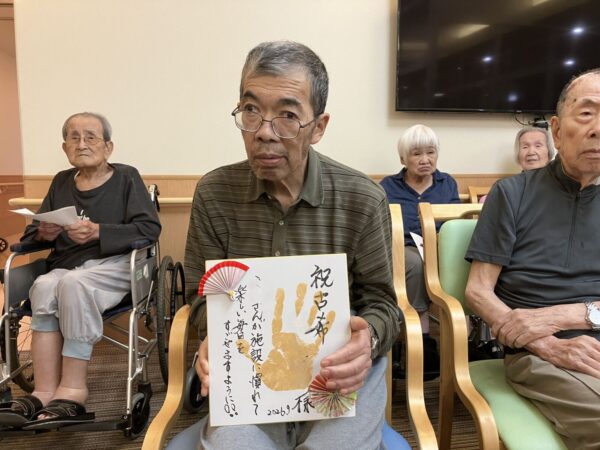 祝古希
様
、さんが施設に慣れて
楽しい毎日を
すごせますように!!
2026.9